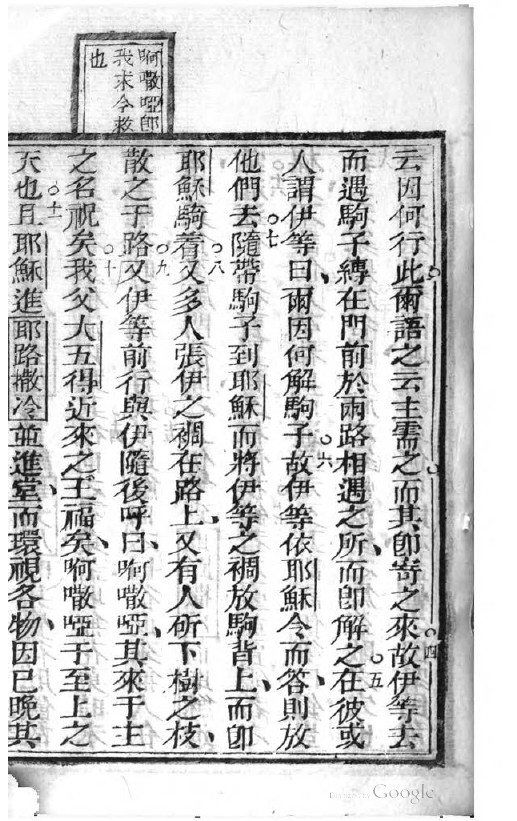 啊啞即
我求今救
也
云因何行此。爾語之云主需之。而其卽寄之來。四故伊等去
而遇駒子縛在門前於兩路相遇之所、而卽解之。五在彼或
人謂伊等曰、爾因何解駒子。六故伊等依耶穌令而答、則放
他們去。七隨帶駒子到耶穌而將伊等之裯放駒背上、而卽
耶穌騎着。八又多人張伊之裯在路上、又有人斫下樹之枝、
散之于路。九又伊等前行與伊隨後呼曰、啊啞、其來于主
之名祝矣。十我父大五得近來之王福矣、啊啞于至上之
天也。十一且耶穌進耶路撒冷並進堂、而環視各物、因已晚其
Google